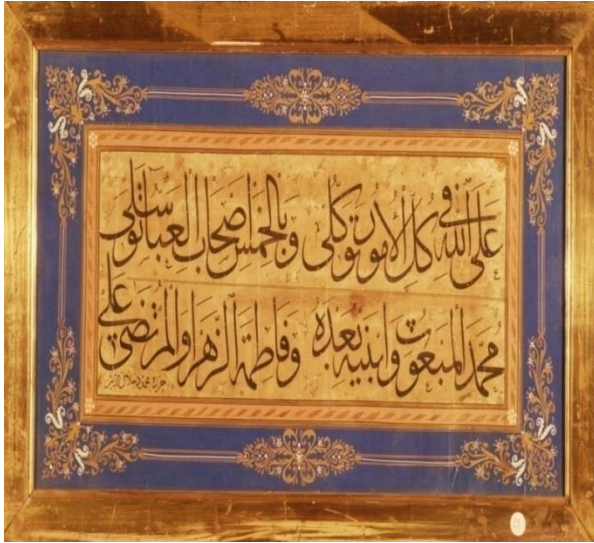 عَلَى اللهِ فِي كُلِّ الْأُمُورِ تَوَكُّلِي وَبِالْخَمْسِ أَصْحَابِ الْعَبَاءِ تَوَسُّلِي
مُحَمَّدِ الْمَبْعُوثِ وَابْنَيْهِ بَعْدَهُ وَفَاطِمَةَ الزَّهْرَاءِ وَالْمُرْتَضَى عَلِي